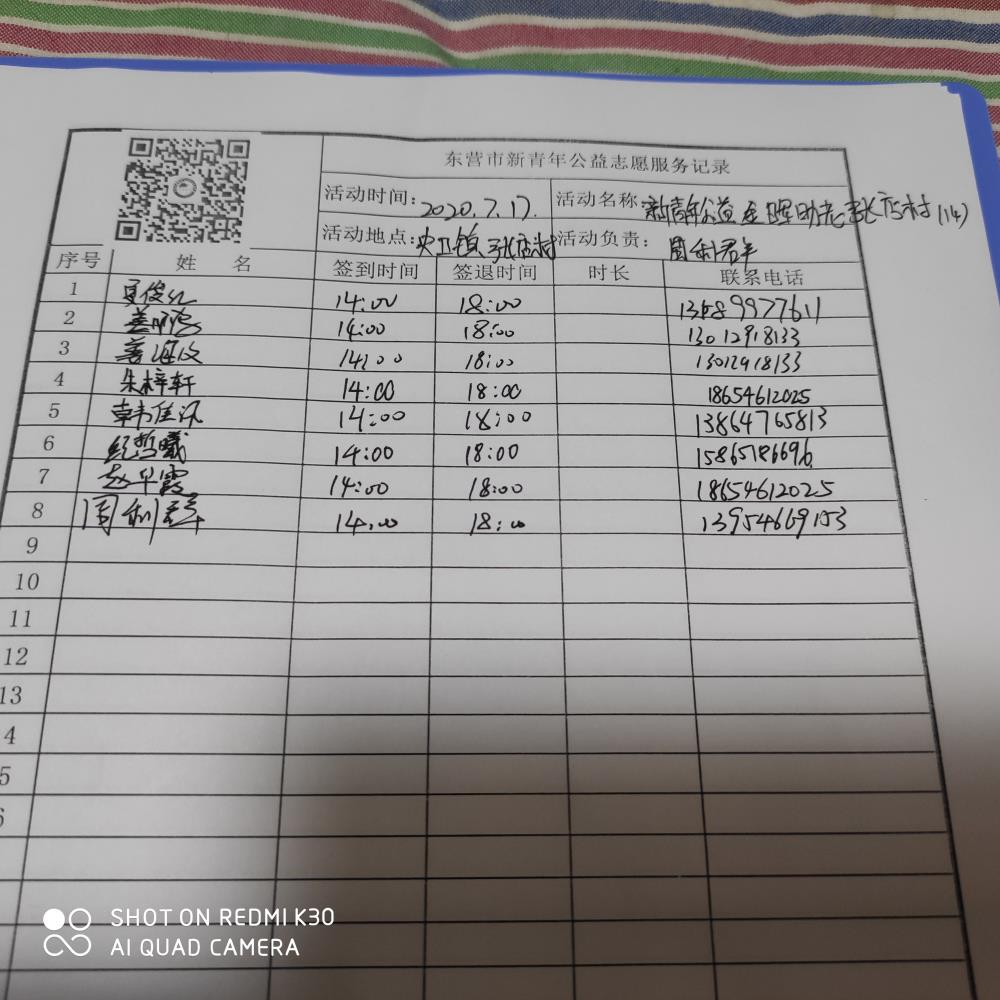 东营市新青年公益志愿服务记录
活动时间:2020.7.17. 活动名称:新青年公益 助老张店村(14)
活动地点:史口镇张店村 活动负责:周利群
序号 姓 名 签到时间 签退时间 时长 联系电话
1 14:00 18:00
2 14:00 18:00 13012918133
3 14:00 18:00 13012918133
4 朱梓轩 14:00 18:00 18654612025
5 韩佳汛 14:00 18:00 13864765813
6 纪哲曦 14:00 18:00 15865186696
7 赵华霞 14:00 18:00 18654612025
8 周利群 14:00 18:00 13954669153
9
10
11
12
13
4
5
6
SHOT ON REDMI K30
AI QUAD CAMERA